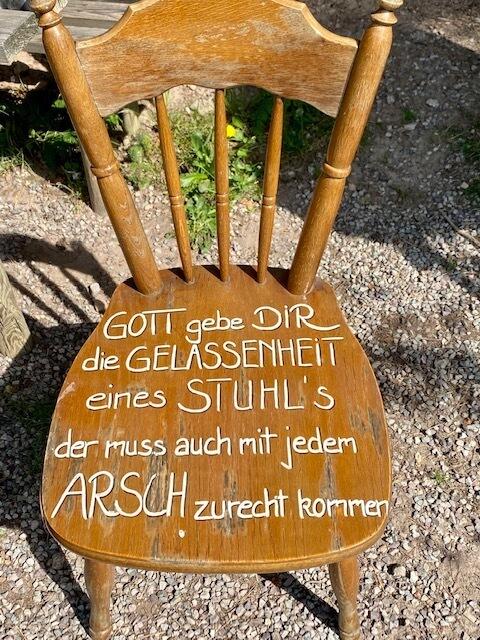 GOTT gebe DIR
die GELASSENHEIT
eines STUHL's
der muss auch mit jedem
ARSCH zurecht kommen